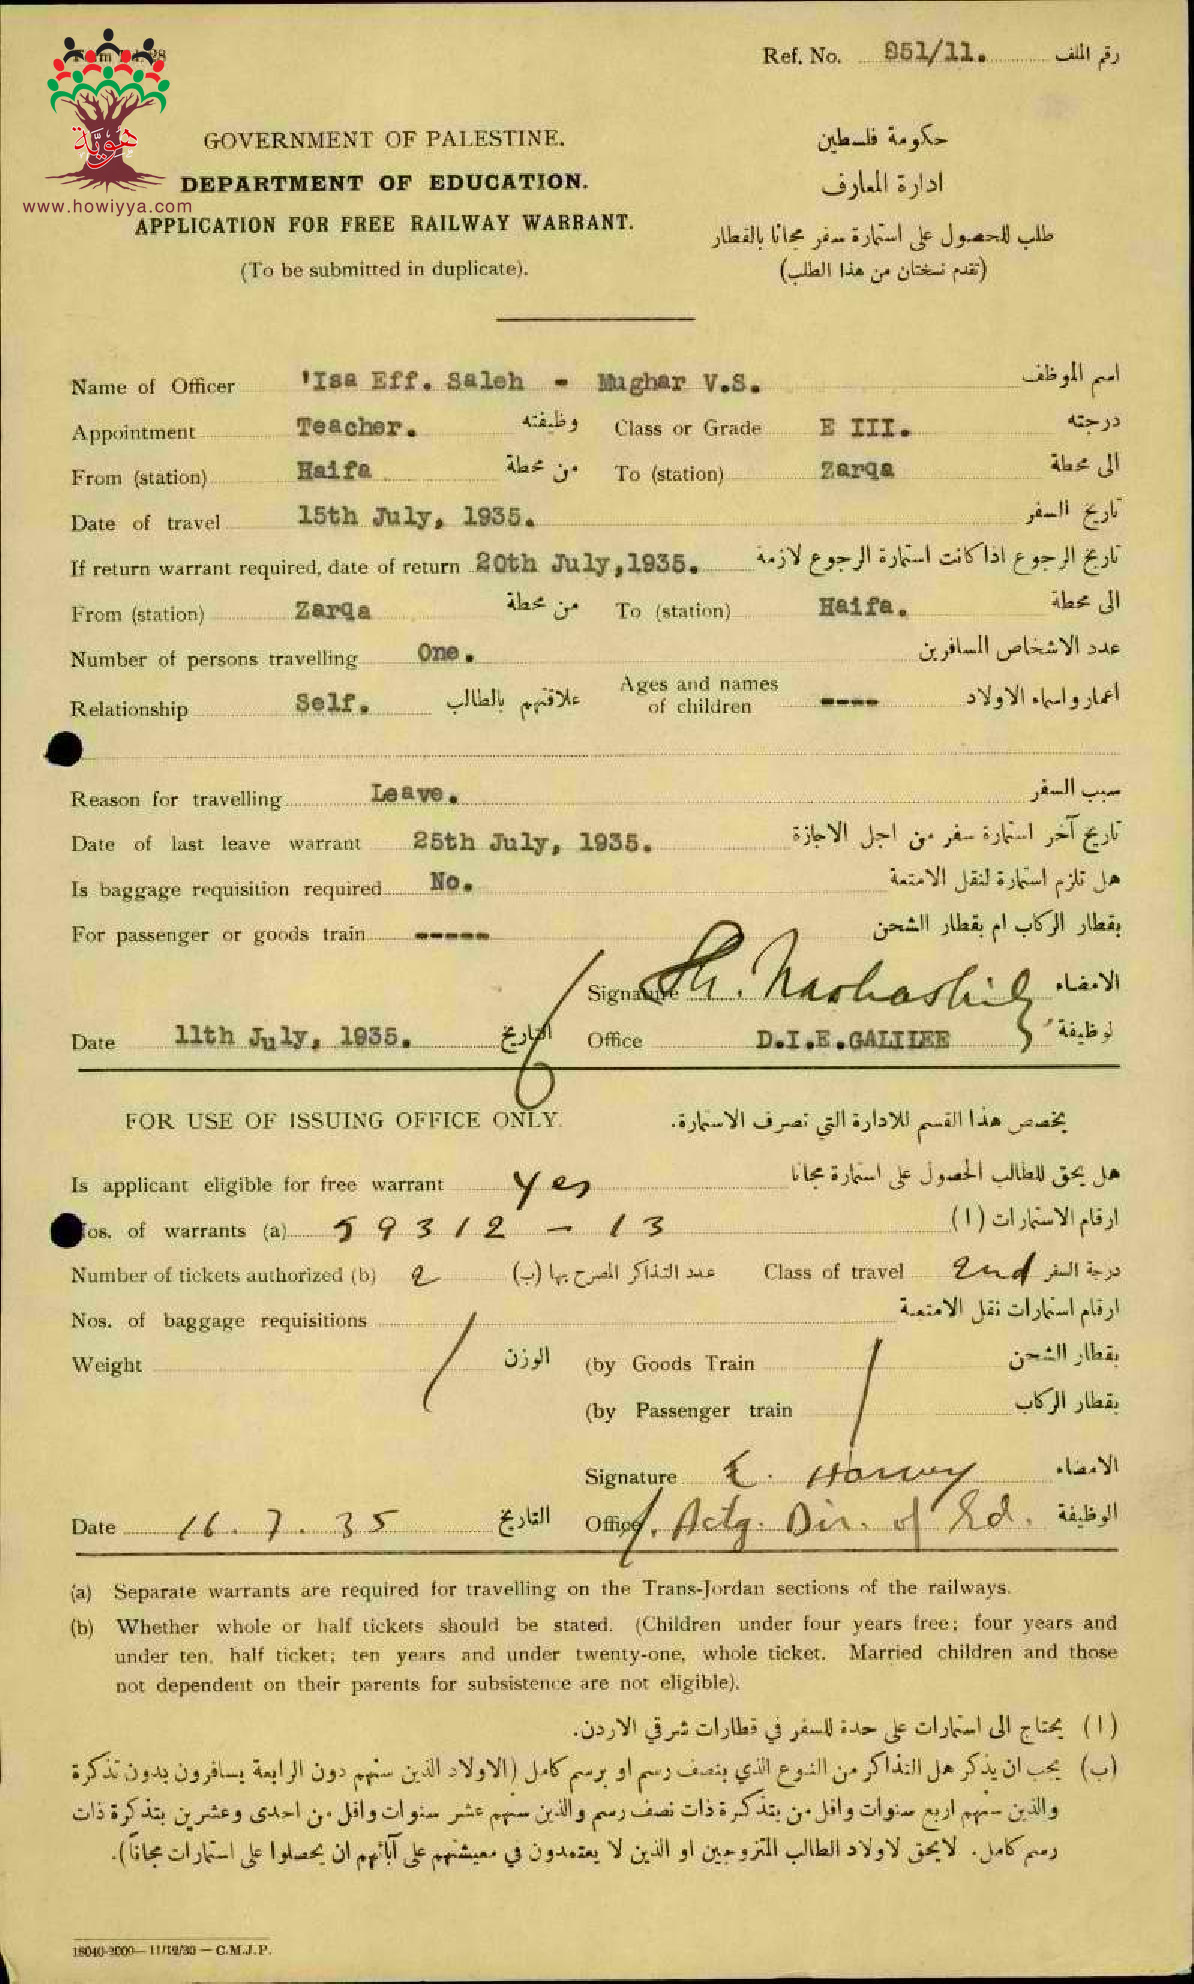 Ref. No. 951/11. رقم الملف
هوية
www.howiyya.com
GOVERNMENT OF PALESTINE. حكومة فلسطين
DEPARTMENT OF EDUCATION. ادارة المعارف
APPLICATION FOR FREE RAILWAY WARRANT. طلب للحصول على استمارة سفر مجانا بالقطار
(To be submitted in duplicate). (تقدم نسختان من هذا الطلب)
Name of Officer 'Isa Eff. Saleh - Mughar V.S. اسم الموظف
Appointment Teacher. وظيفته Class or Grade E III. درجته
From (station) Haifa من محطة To (station) Zarqa الى محطة
Date of travel 15th July, 1935. تاريخ السفر
If return warrant required, date of return 20th July,1935. تاريخ الرجوع اذا كانت استمارة الرجوع لازمة
From (station) Zarqa من محطة To (station) Haifa. الى محطة
Number of persons travelling One. عدد الاشخاص المسافرين
Relationship Self. علاقتهم بالطالب Ages and names of children ---- اعمار واسماء الاولاد
Reason for travelling Leave. سبب السفر
Date of last leave warrant 25th July, 1935. تاريخ آخر استمارة سفر من اجل الاجازة
Is baggage requisition required No. هل تلزم استمارة لنقل الامتعة
For passenger or goods train ----- بقطار الركاب ام بقطار الشحن
Signature Sh. Nashashibi الامضاء
Date 11th July, 1935. التاريخ Office D.I.E.GALILEE لوظيفة
FOR USE OF ISSUING OFFICE ONLY. يخصص هذا القسم للادارة التي تصرف الاستمارة.
Is applicant eligible for free warrant Yes هل يحق للطالب الحصول على استمارة مجانا
Nos. of warrants (a) 59312 - 13 ارقام الاستمارات (ا)
Number of tickets authorized (b) 2 عدد التذاكر المصرح بها (ب) Class of travel 2nd درجة السفر
Nos. of baggage requisitions ارقام استمارات نقل الامتعة
Weight الوزن (by Goods Train بقطار الشحن
(by Passenger train بقطار الركاب
Signature E. Harvey الامضاء
Date 16.7.35 التاريخ Office Actg. Dir. of Ed. الوظيفة
(a) Separate warrants are required for travelling on the Trans-Jordan sections of the railways.
(b) Whether whole or half tickets should be stated. (Children under four years free; four years and
under ten, half ticket; ten years and under twenty-one, whole ticket. Married children and those
not dependent on their parents for subsistence are not eligible).
(ا) يحتاج الى استمارات على حدة للسفر في قطارات شرقي الاردن.
(ب) يجب ان يذكر هل التذاكر من النوع الذي بنصف رسم او برسم كامل (الاولاد الذين سنهم دون الرابعة يسافرون بدون تذكرة
والذين سنهم اربع سنوات واقل من بتذكرة ذات نصف رسم والذين سنهم عشر سنوات واقل من احدى وعشرين بتذكرة ذات
رسم كامل. لايحق لاولاد الطالب المتزوجين او الذين لا يعتمدون في معيشتهم على آبائهم ان يحصلوا على استمارات مجاناً).
18040-2000—11/12/33—C.M.J.P.